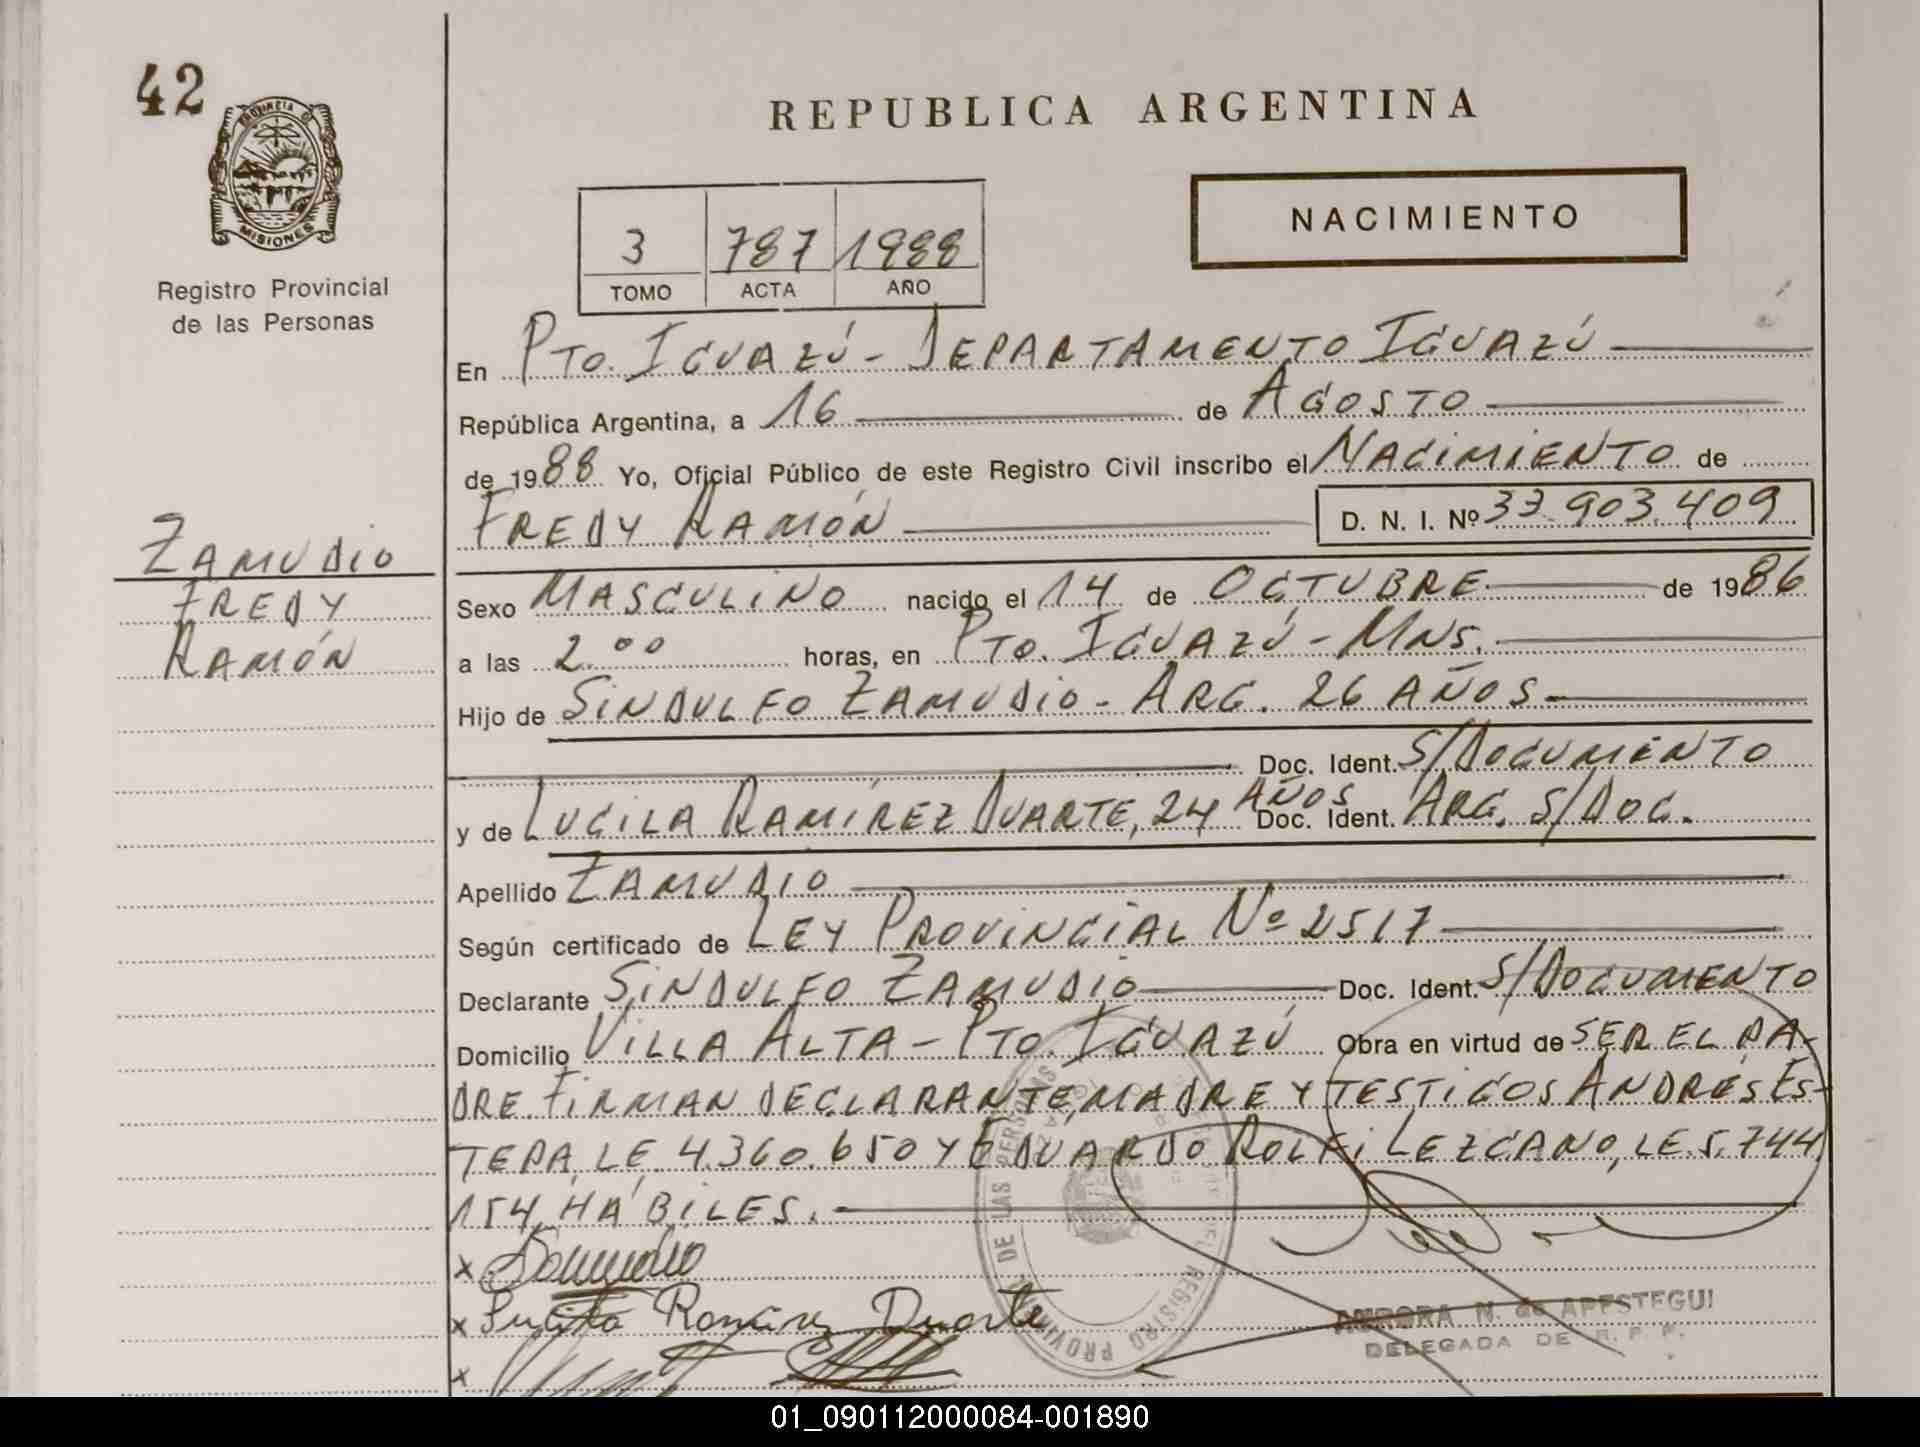 42
PROVINCIA D
MISIONES
Registro Provincial
de las Personas
REPUBLICA ARGENTINA
NACIMIENTO
3 787 1988
TOMO ACTA AÑO
En PTO. IGUAZÚ - DEPARTAMENTO IGUAZÚ
República Argentina, a 16 de AGOSTO
de 1988 Yo, Oficial Público de este Registro Civil inscribo el NACIMIENTO de
FREDY RAMÓN D. N. I. Nº 33.903.409
ZAMUDIO
FREDY
RAMÓN
Sexo MASCULINO nacido el 14 de OCTUBRE de 1986
a las 2.00 horas, en PTO. IGUAZÚ - MNS.
Hijo de SINDULFO ZAMUDIO - ARG. 26 AÑOS -
Doc. Ident. S/DOCUMENTO
y de LUCILA RAMÍREZ DUARTE, 24 AÑOS Doc. Ident. ARG. S/DOC.
Apellido ZAMUDIO
Según certificado de LEY PROVINCIAL Nº 2517
Declarante SINDULFO ZAMUDIO Doc. Ident. S/DOCUMENTO
Domicilio VILLA ALTA - PTO. IGUAZÚ Obra en virtud de SER EL PA-
DRE. FIRMAN DECLARANTE, MADRE Y TESTIGOS ANDRÉS ES-
TEPA, LE. 4.360.650 Y EDUARDO ROLFI LEZCANO, LE. 5.744
154, HÁBILES. -
x
x Lucila Ramirez Duarte
x
REGISTRO PROVINCIAL DE LAS PERSONAS
AURORA N. de APESTEGUI
DELEGADA DE R. P. P.
01_090112000084-001890